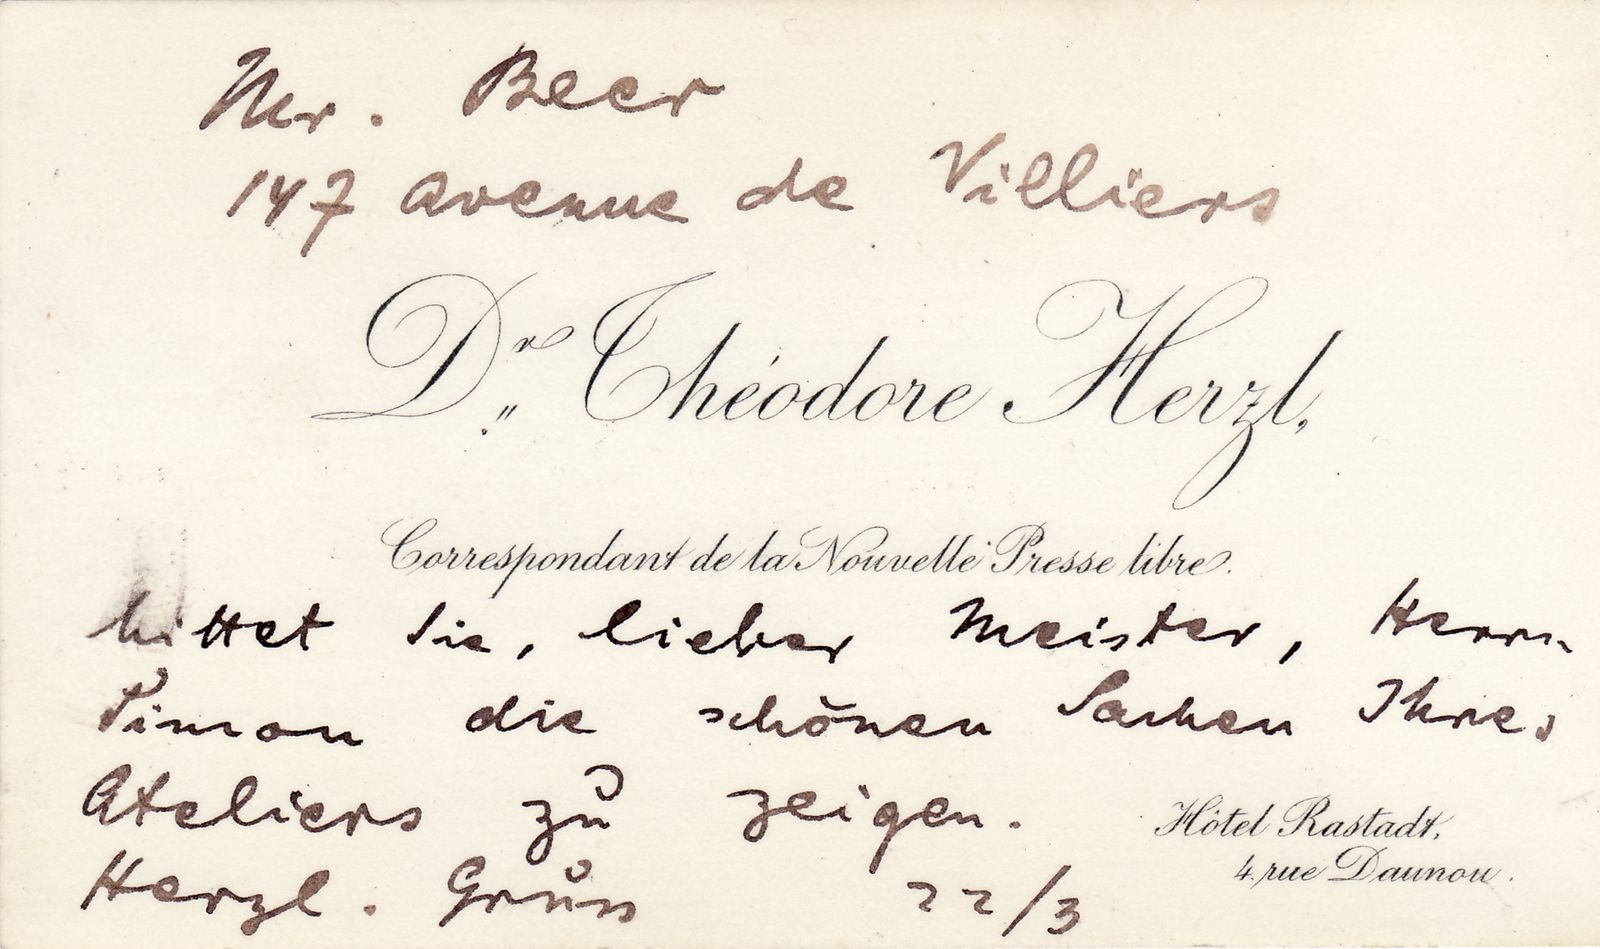 Mr. Beer
147 avenue de Villiers
Dr. Théodore Herzl,
Correspondant de la Nouvelle Presse libre.
bittet Sie, lieber Meister, Herrn
die schönen Sachen Ihres
Ateliers zu zeigen.
Hôtel Rastadt,
4, rue Daunou.
Herzl. Gruss 22/3